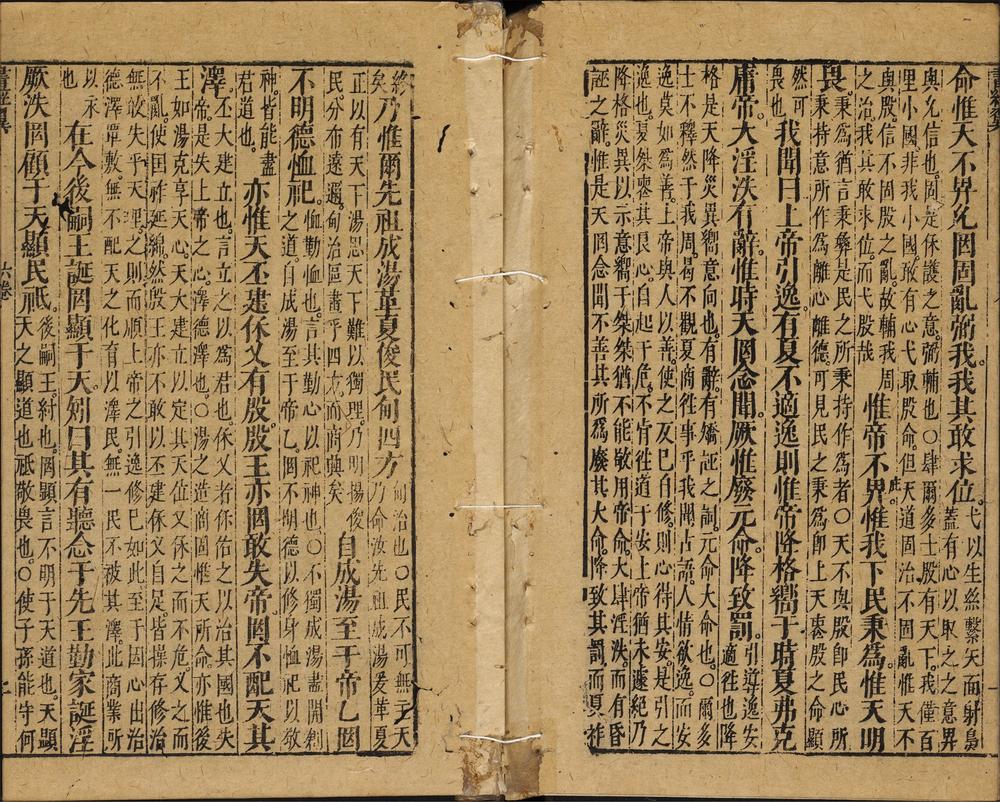 命惟天不畀允罔固亂弼我我其敢求位。弋以生絲繫矢而射鳥
蓋有心以取之之意畀
與允信也。固是保護之意弼輔也○肆爾多士殷有天下。我僅百
里小國。非我小國敢有心弋取殷命。但天道固治不固亂惟天不
與殷信不固殷之亂。故輔我周
之治。我其敢求位。而弋殷哉
惟帝不畀惟我下民秉為惟天明
畏。秉為猶言秉彝是民之所秉持作為者○天不與殷即民心所
秉持意所作為離心離德。可見民之秉為即上天喪殷之命顯
然可
畏也
我聞曰上帝引逸有夏不適逸則惟帝降格嚮于時夏弗克
庸帝大淫泆有辭惟時天罔念聞厥惟廢元命降致罰。引導逸安
適往也降
格是天降災異嚮意向也。有辭。有矯誣之詞。元命大命也。○爾多
士不釋然于我周。曷不觀夏商往事乎我聞古語。人情欲逸。而安
逸莫如為善。上帝與人以善。使之反已自修。則心得其安。是引之
逸也。夏桀喪其良心。自起于危。不肯往道于安上帝猶未遽紀乃
降格災異以示意嚮于桀桀猶不能敬用帝命。大肆淫泆。而有昏
誣之辭。惟是天罔念聞不善其所為。廢其大命。降致其罰而夏祚
終
矣
乃惟爾先祖成湯革夏俊民甸四方甸治也○民不可無主天
乃命汝先祖成湯爰革夏
正以有天下湯思天下難以獨理。乃明揚俊
民分布遠邇甸治區畫乎四方。而商興矣
自成湯至于帝乙罔
不明德恤祀。恤勤恤也。言其勤心以祀神也○不獨成湯盡開創
之道。自成湯至于帝乙。罔不明德以修身恤祀以敬
神。皆能盡
君道也。
亦惟天丕建保乂有殷殷王亦罔敢失帝罔不配天其
澤。丕大建立也。言立之以為君也。保乂者保佑之以治其國也失
帝是失上帝之心。澤德澤也。○湯之造商固惟天所命亦惟後
王如湯克享天心。天大建立以定其天位又保之而不危乂之而
不亂。使國祚延綿。然殷王亦不敢以丕建保乂自足皆操存修治
無敢失乎天理之則而順上帝之引逸修已如此至于因心出治
德澤單敷無不配天之化育以澤民。無一民不被其澤。此商業所
以永
也
在今後嗣王誕罔顯于天矧曰其有聽念于先王勤家誕淫
厥泆罔顧于天顯民祗後嗣王。紂也。罔顯言不明于天道也。天顯
天之顯道也祗敬畏也。○使子孫能守何
六卷